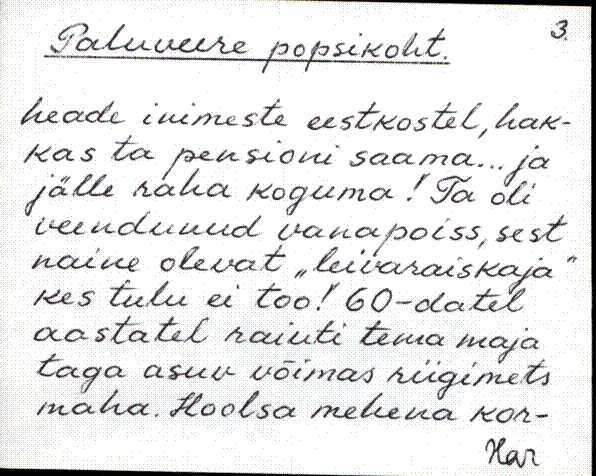 3.
Paluveere popsikoht.
heade inimeste eestkostel, hak-
kas ta pensioni saama... ja
jälle raha koguma! Ta oli
veendunud vanapoiss, sest
naine olevat „leivaraiskaja“
kes tulu ei too! 60-datel
aastatel raiuti tema maja
taga asuv võimas riigimets
maha. Hoolsa mehena kor-
Har